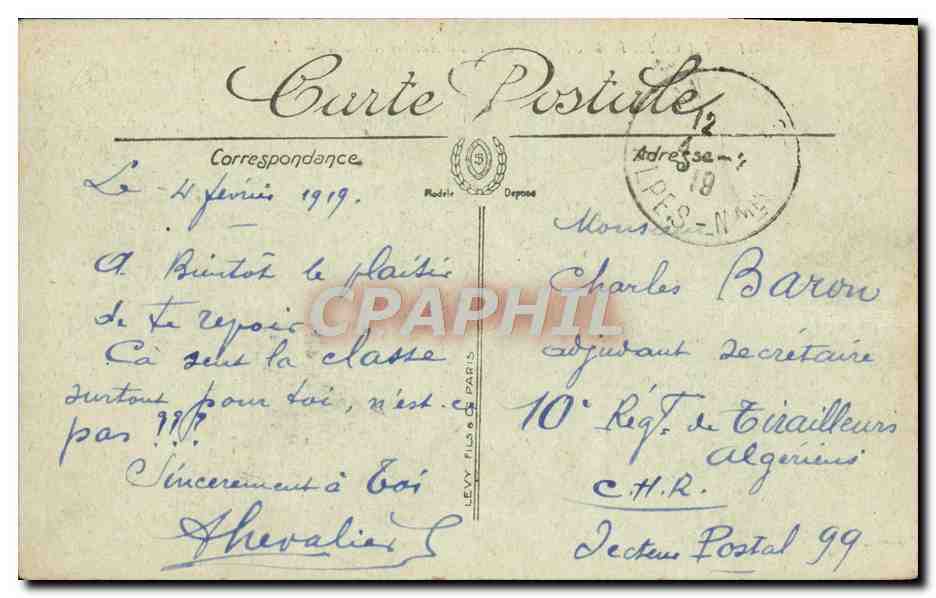 Carte Postale
Correspondance
Adresse
Modèle Déposé
12
19
LPES-
Le 4 février 1919.
A Bientôt le plaisir
de te revoir
Cà sent la classe
surtout pour toi, n'est-ce
pas ???
Sincerement à Toi
Chevalier
LEVY FILS & Cie PARIS
Monsieur
Charles Baron
adjudant secrétaire
10e Régt. de Tirailleurs
Algériens
C.H.R.
Secteur Postal 99
CPAPHIL